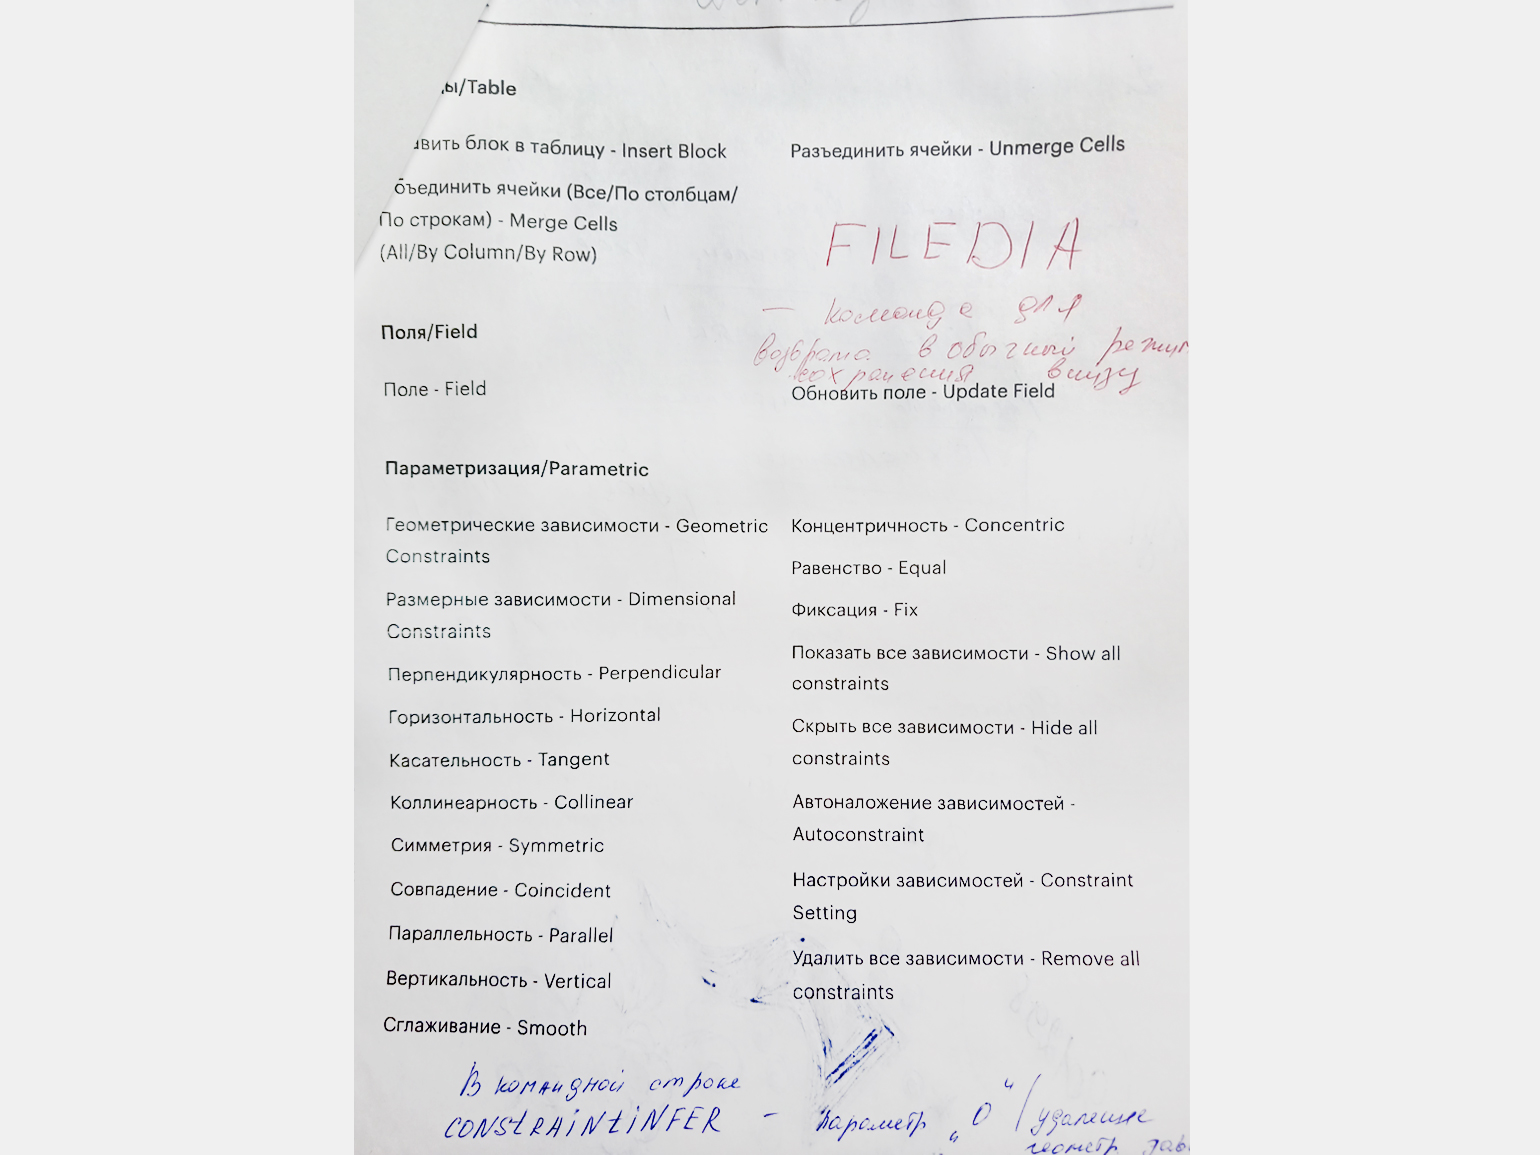 ы/Table
авить блок в таблицу - Insert Block
объединить ячейки (Все/По столбцам/
По строкам) - Merge Cells
(All/By Column/By Row)
Разъединить ячейки - Unmerge Cells
FILEDIA
— команда для
возврата в обычный режим
сохранения внизу
Поля/Field
Поле - Field
Обновить поле - Update Field
Параметризация/Parametric
Геометрические зависимости - Geometric
Constraints
Размерные зависимости - Dimensional
Constraints
Перпендикулярность - Perpendicular
Горизонтальность - Horizontal
Касательность - Tangent
Коллинеарность - Collinear
Симметрия - Symmetric
Совпадение - Coincident
Параллельность - Parallel
Вертикальность - Vertical
Сглаживание - Smooth
Концентричность - Concentric
Равенство - Equal
Фиксация - Fix
Показать все зависимости - Show all
constraints
Скрыть все зависимости - Hide all
constraints
Автоналожение зависимостей -
Autoconstraint
Настройки зависимостей - Constraint
Setting
Удалить все зависимости - Remove all
constraints
В командной строке
CONSTRAINTINFER — параметр „0“ / удаление
геометр зав